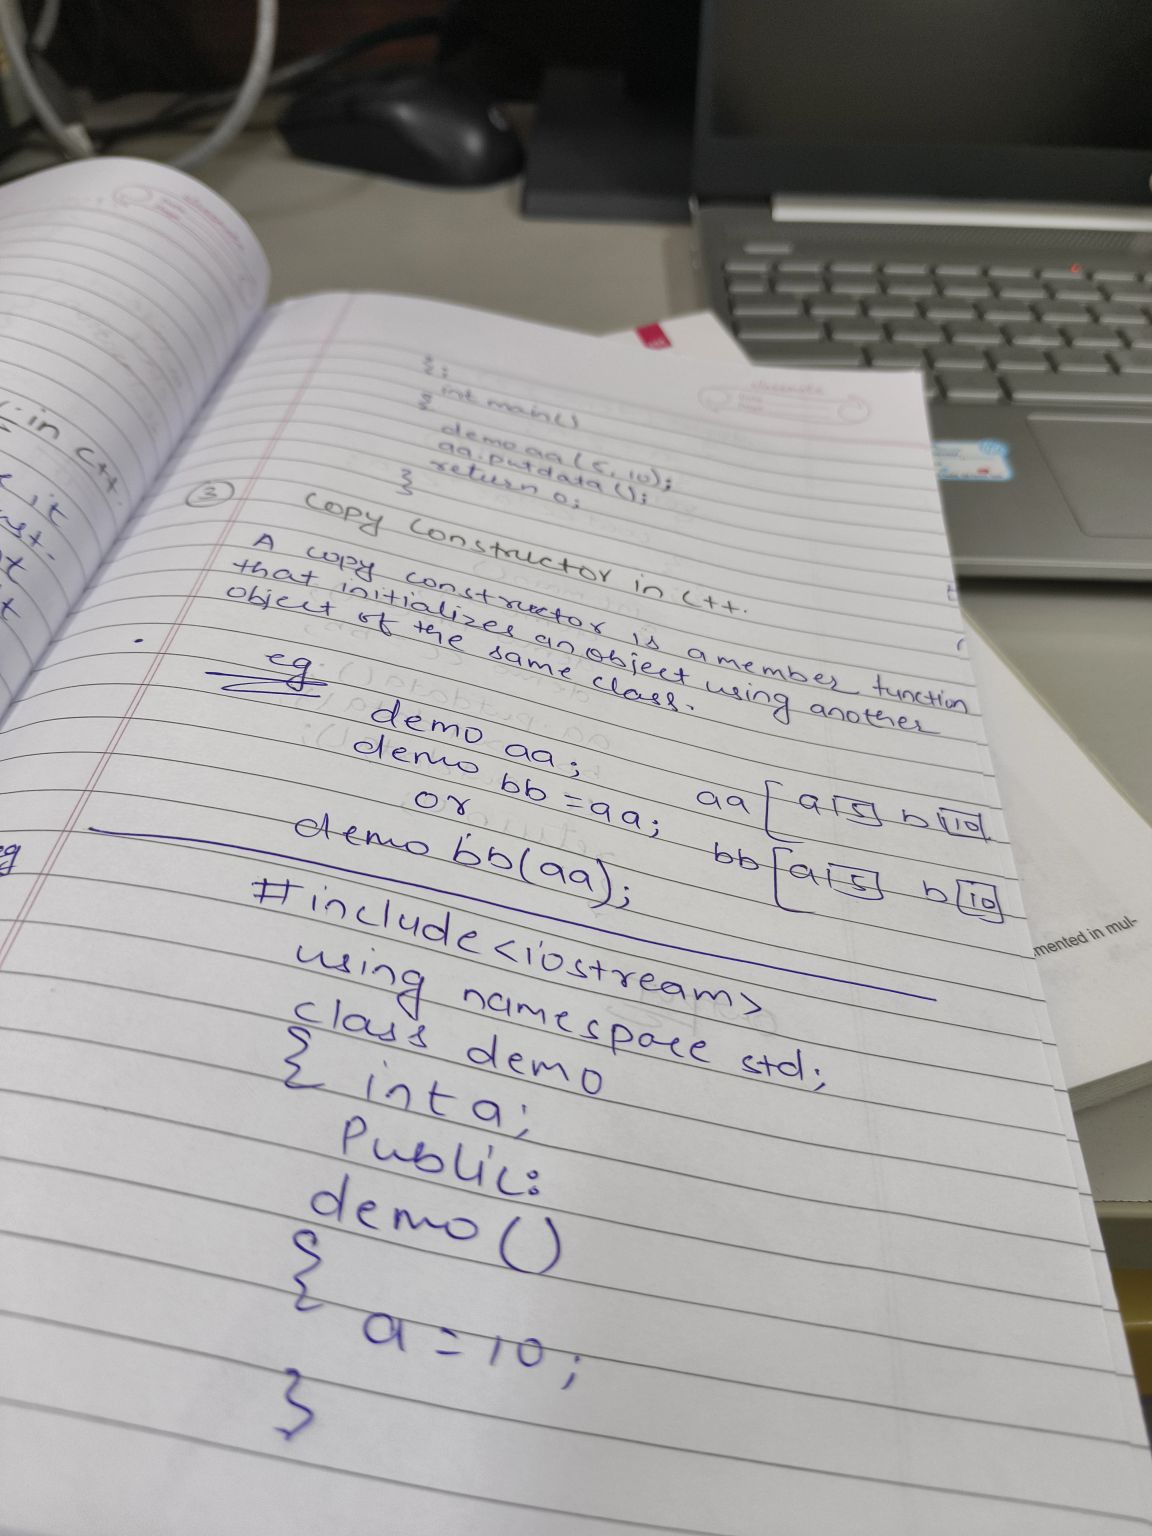 : in C++.
it
};
int main()
{
demo aa(5,10);
aa.putdata();
return 0;
}
3
Copy Constructor in C++.
A copy constructor is a member function
that initializes an object using another
object of the same class.
eg
demo aa;
demo bb = aa;
or
demo bb(aa);
aa [ a 5 b 10
bb [ a 5 b 10
#include<iostream>
using namespace std;
class demo
{ int a;
Public:
demo()
{
a = 10;
}
eg
mented in mul-